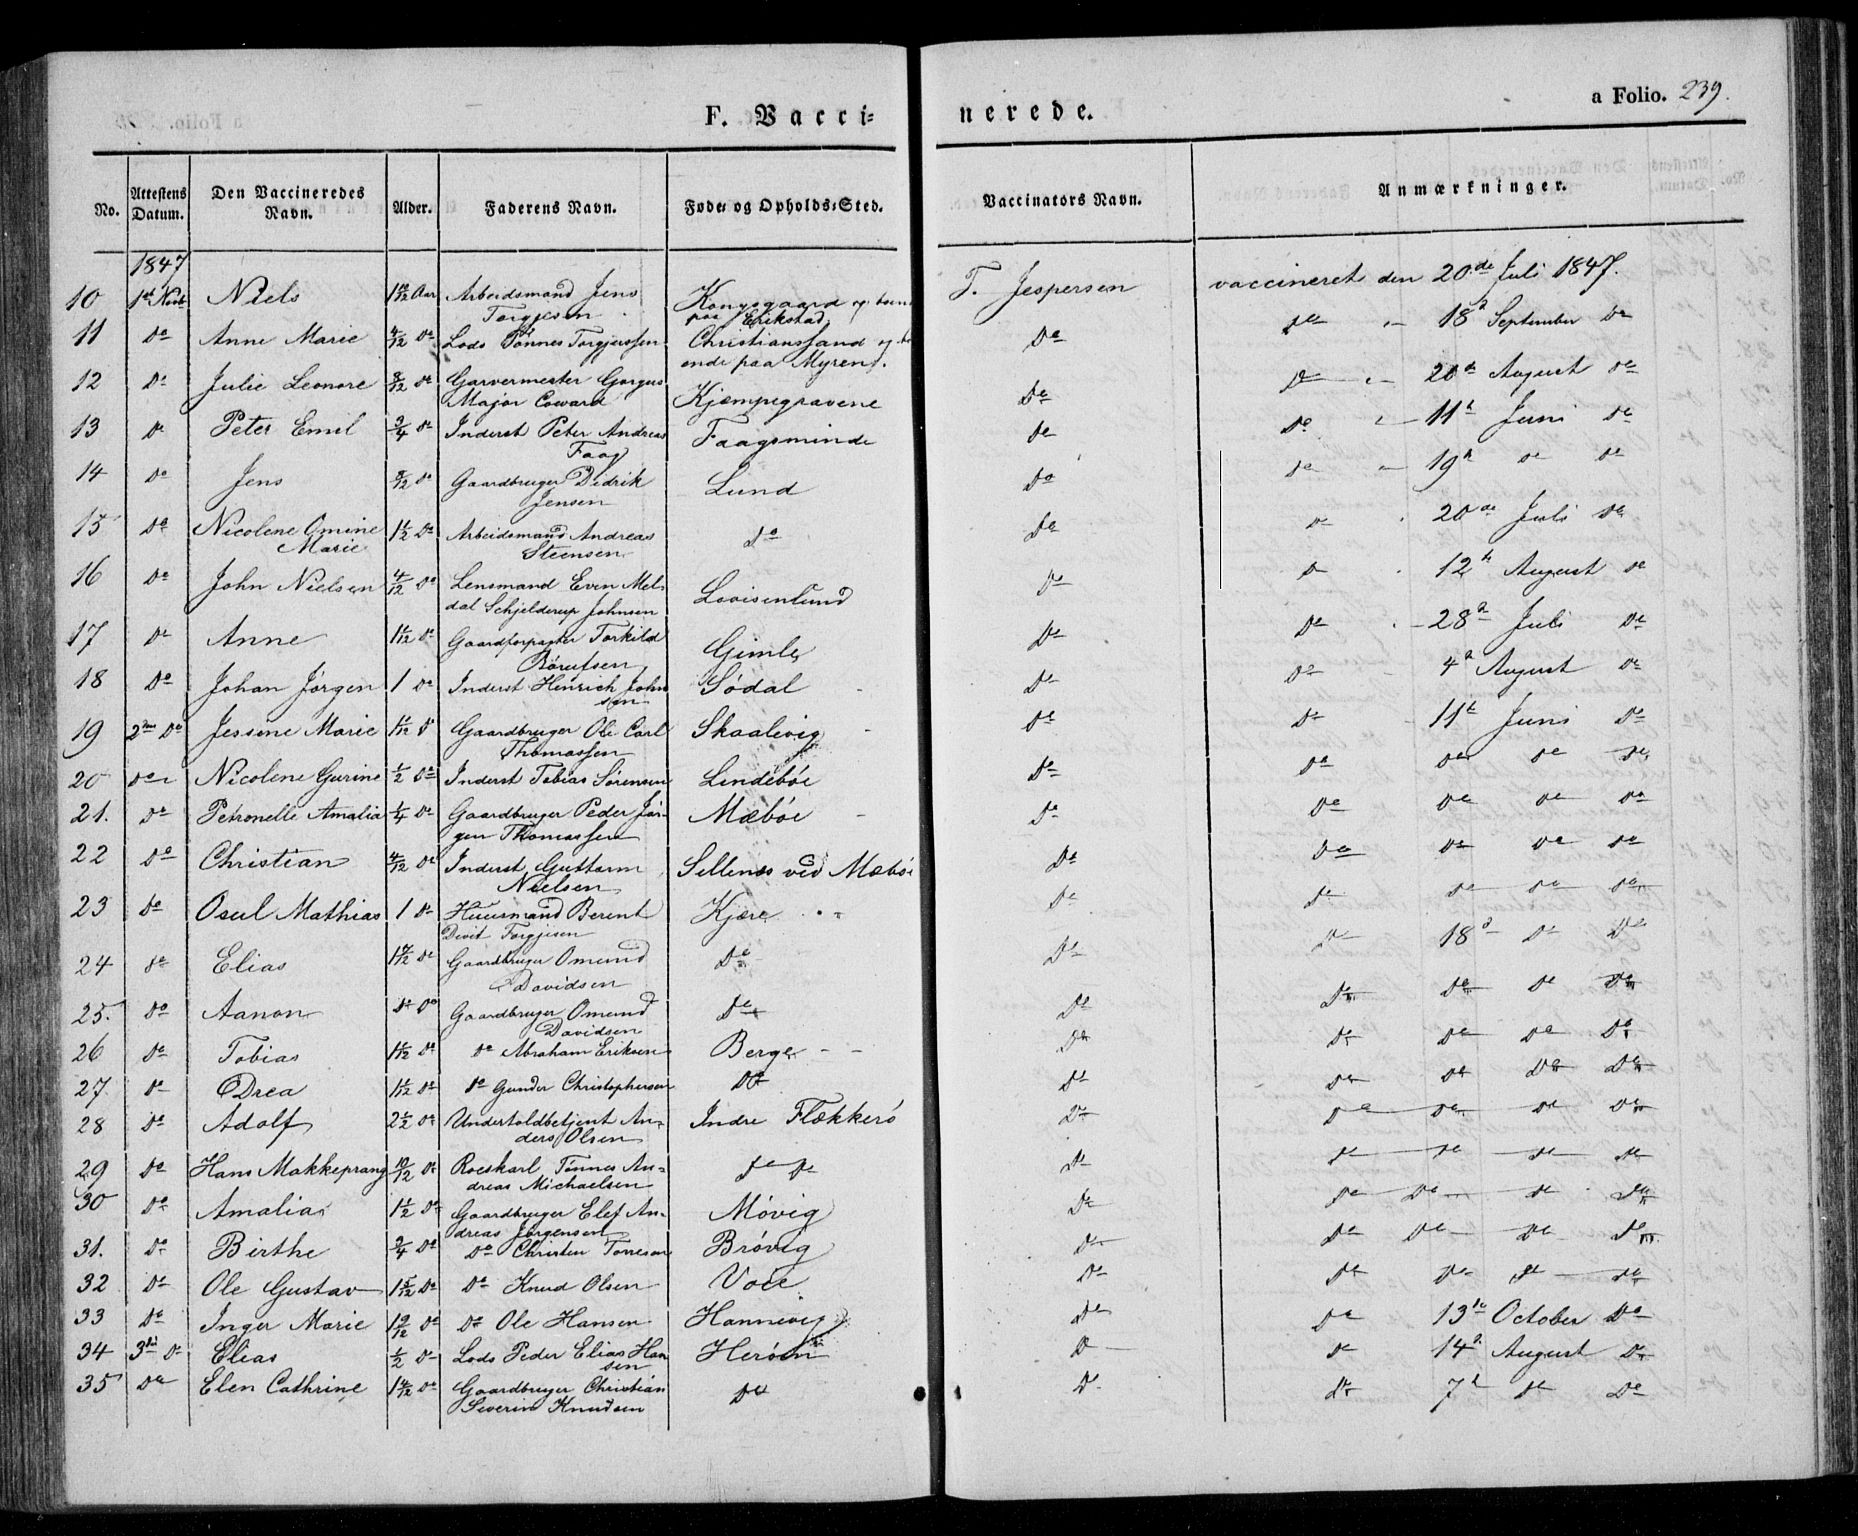 F. Vacci= nerede. a Folio. 239.
No. Attestens Datum. Den Vaccineredes Navn. Alder. Faderens Navn. Føde- og Opholds-Sted. Vaccinators Navn. Anmærkninger.
1847
10 1ste Novb Niels Aar Arbeidsmand Jens Torgjesen Kongsgaard og boende paa Erikstad T. Jespersen vaccineret den 20de Juli 1847.
11 do Anne Marie 4/12 do Lods Tønnes Torgjerssen Christianssand og boende paa Myrene. do do " 18d September do
12 do Julie Leonore 8/12 do Garvermester Gorgus Major Coward Kjæmpegravene do do " 20d August do
13 do Peter Emil 3/4 do Inderst Peter Andreas Faag Faagsminde do do " 11t Juni do
14 do Jens 8/12 do Gaardbruger Didrik Jensen Lund do do " 19d do do
15 do Nicolene Omine Marie 1 1/2 do Arbeidsmand Andreas Steensen do do do 20de Juli do
16 do John Nielsen 4/12 do Lensmand Even Meldal Schjelderup Johnsen Lovisenlund do do 12t August do
17 do Anne do Gaardforpagter Torkild Børufsen Gimle do do 28d Juli do
18 do Johan Jørgen 1 do Inderst Henrich Johnsen Sødal do do 4d August do
19 2den do Jessine Marie do Gaardbruger Ole Carl Thomassen Skaalevig do do 11t Juni do
20 do Nicolene Gurine 1/2 do Inderst Tobias Sørensen Lindebøe do do do do do
21. do Petronelle Amalia 1/4 do Gaardbruger Peder Jørgen Thomassen Mæbøe do do do do do
22 do Christian do Inderst Guttorm Nielsen Sillenæs ved Mæbøe do do do do do
23 do Osul Mathias 1 do Huusmand Berent Devit Torgjesen Kjære do do do do do
24 do Elias do Gaardbruger Omund Davidsen do do do 18d do do
25. do Aanon do do Gaardbruger Omund Davidsen do do do do do do
26 do Tobias do do Abraham Eriksen Berge do do do do do
27. do Odrea do do Gunder Christophersen do do do do do do
28 do Adolf 2 1/2 do Undertoldbetjent Anders Olsen Indre Flækkerø do do do do do
29 do Hans Makkeprang 10/12 do Roeskarl Tønnes Andreas Michaelsen do do do do do do do
30 do Amalia 1 1/2 do Gaardbruger Elef Andreas Jørgensen Møvig do do do do do
31. do Birthe 3/4 do do Christen Torresen Brøvig do do do do do
32 do Ole Gustav 1 5/12 do do Knud Olsen Voie do do do do do
33 do Inger Marie do do Ole Hansen Hannevig do do 13de October do
34 3die do Elias 1/2 do Lods Peder Elias Hansen Herøen do do 14d August do
35 do Elen Cathrine 1 4/12 do Gaardbruger Christian Severin Knudsen do do do 7d do do